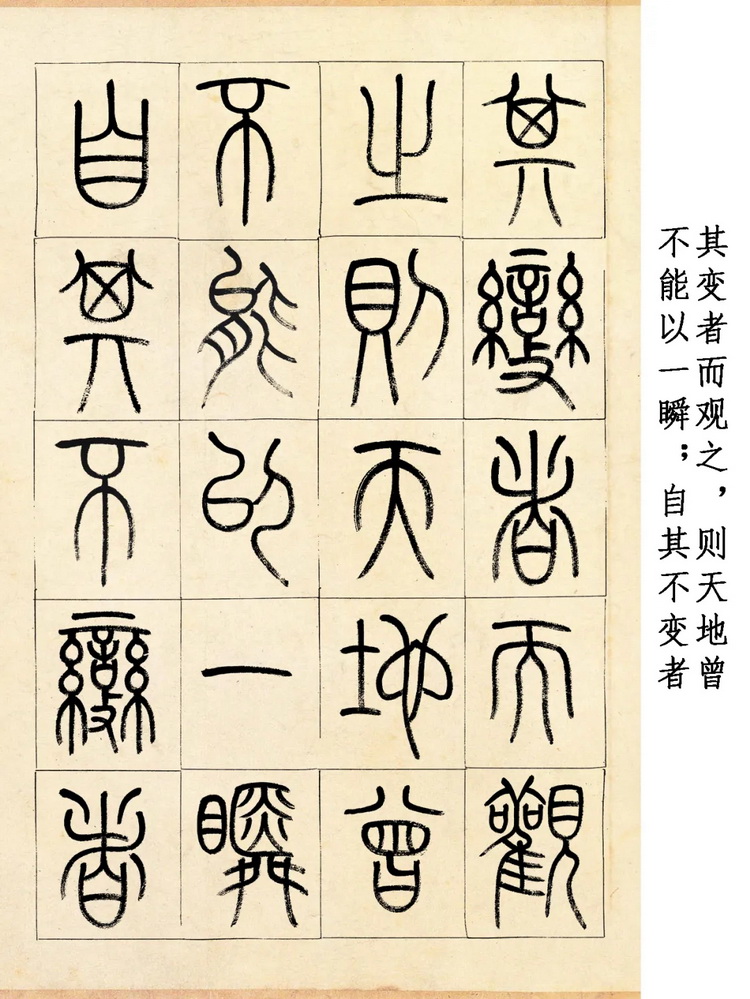 其變者而觀
之則天地曾
不能以一瞬
自其不變者
其变者而观之，则天地曾
不能以一瞬；自其不变者